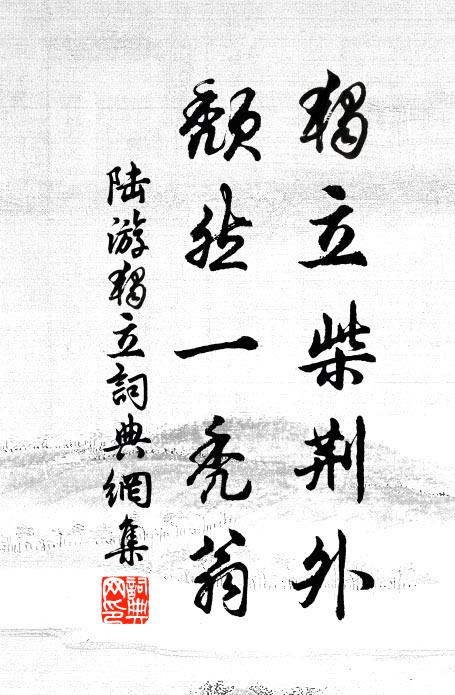 獨立柴荊外
頹然一禿翁
陸游獨立詞典網集
詞典
网印